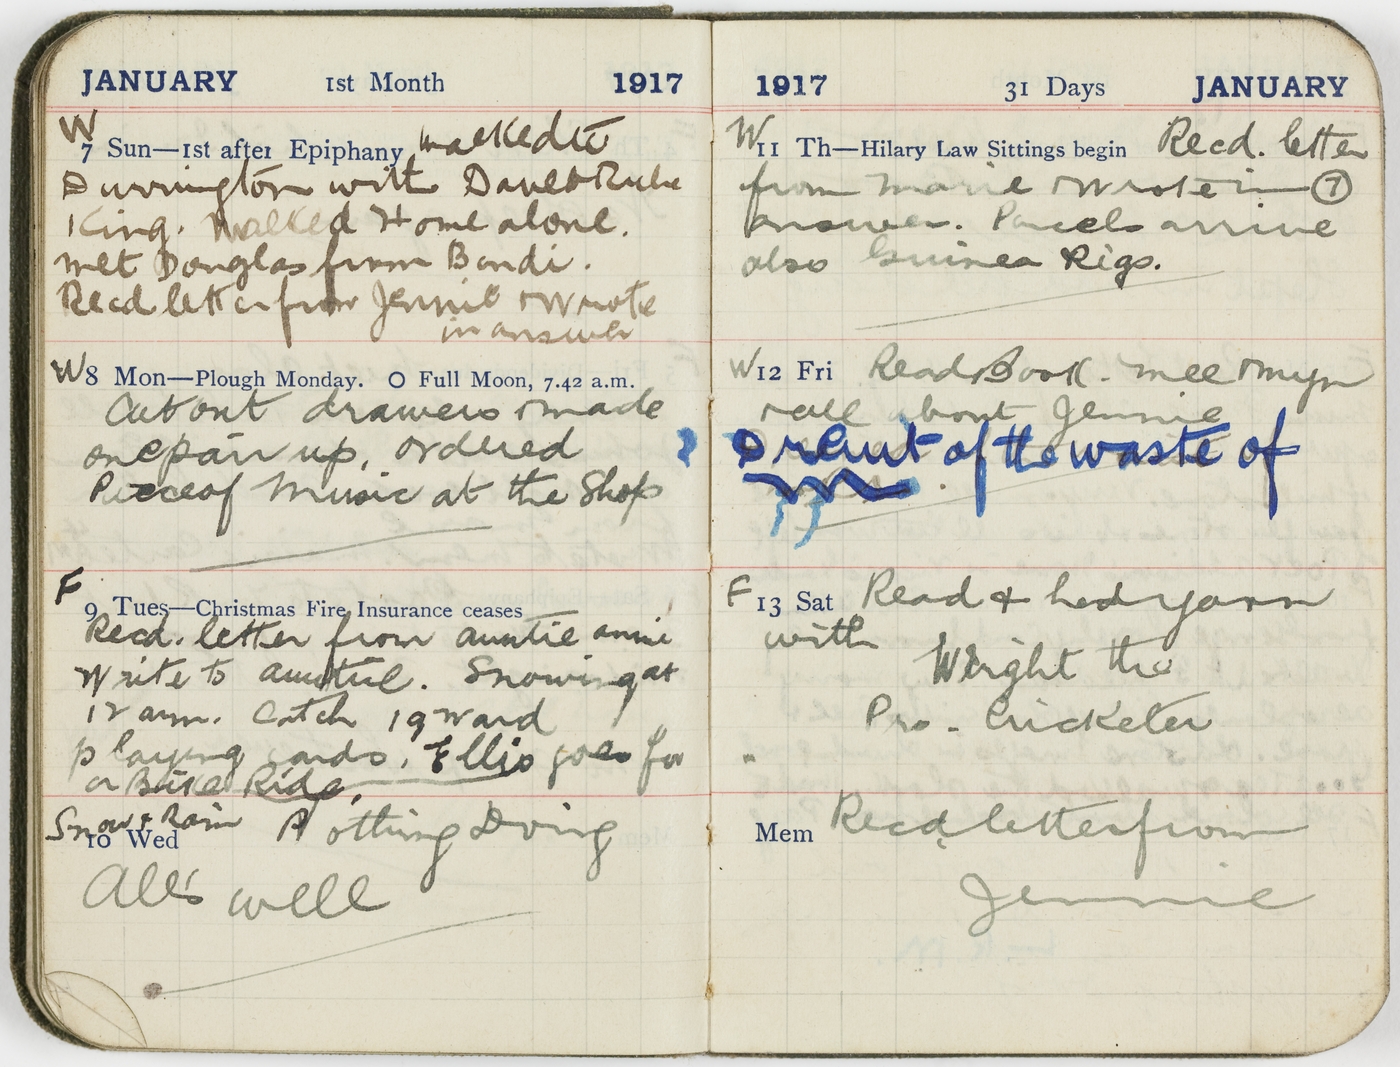 JANUARY 1st Month 1917
W
7 Sun—1st after Epiphany Walked to
Durrington with Dave & Rube
King. Walked Home alone.
Met Douglas from Bondi.
Recd letter from Jennie & Wrote
in answer
W 8 Mon—Plough Monday. O Full Moon, 7.42 a.m.
Cut out drawers & made
one pair up, ordered
Piece of Music at the Shop
F
9 Tues—Christmas Fire Insurance ceases
Recd. letter from auntie annie
Write to auntie. Snowing at
12 am. Catch 19 Ward
playing cards. Ellis goes for
a Bike Ride.
Snow & Rain Nothing Doing
10 Wed
All's well
1917 31 Days JANUARY
W 11 Th—Hilary Law Sittings begin Recd. letter
from Marie & Wrote in 7
answer. Parcels arrive
also Guinea Pigs.
W 12 Fri Read Book.
about Jennie
Dreamt of the waste of
F 13 Sat Read & had yarn
with
Wright the
Pro. Cricketer
Mem Recd letter from
Jennie